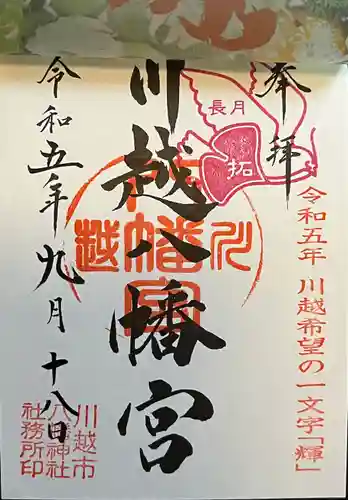 奉拝
長月
拓
令和五年 川越希望の一文字「輝」
川越八幡宮
令和五年九月十八日
川越市
八幡神社
社務所印